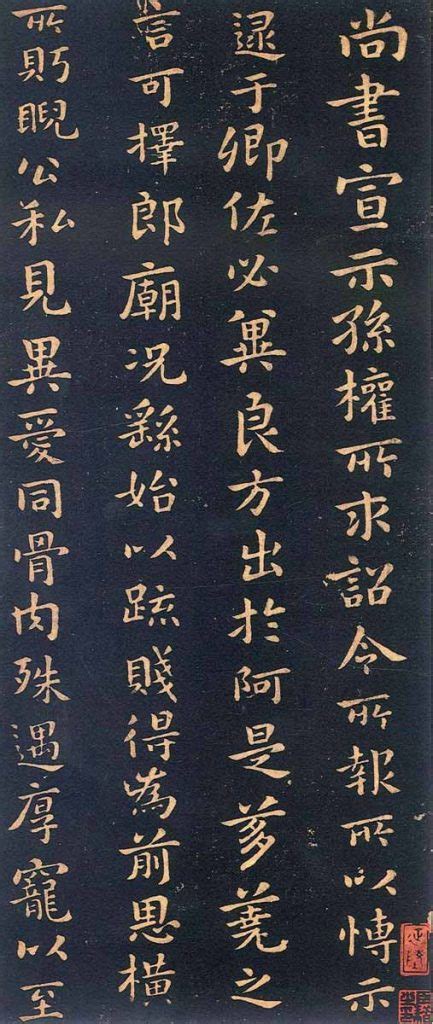 尚書宣示孫權所求詔令所報所以愽示
逮于卿佐必冀良方出於阿是芻蕘之
言可擇郎廟况繇始以疏賤得爲前恩橫
所眄睨公私見異愛同骨肉殊遇厚寵以至